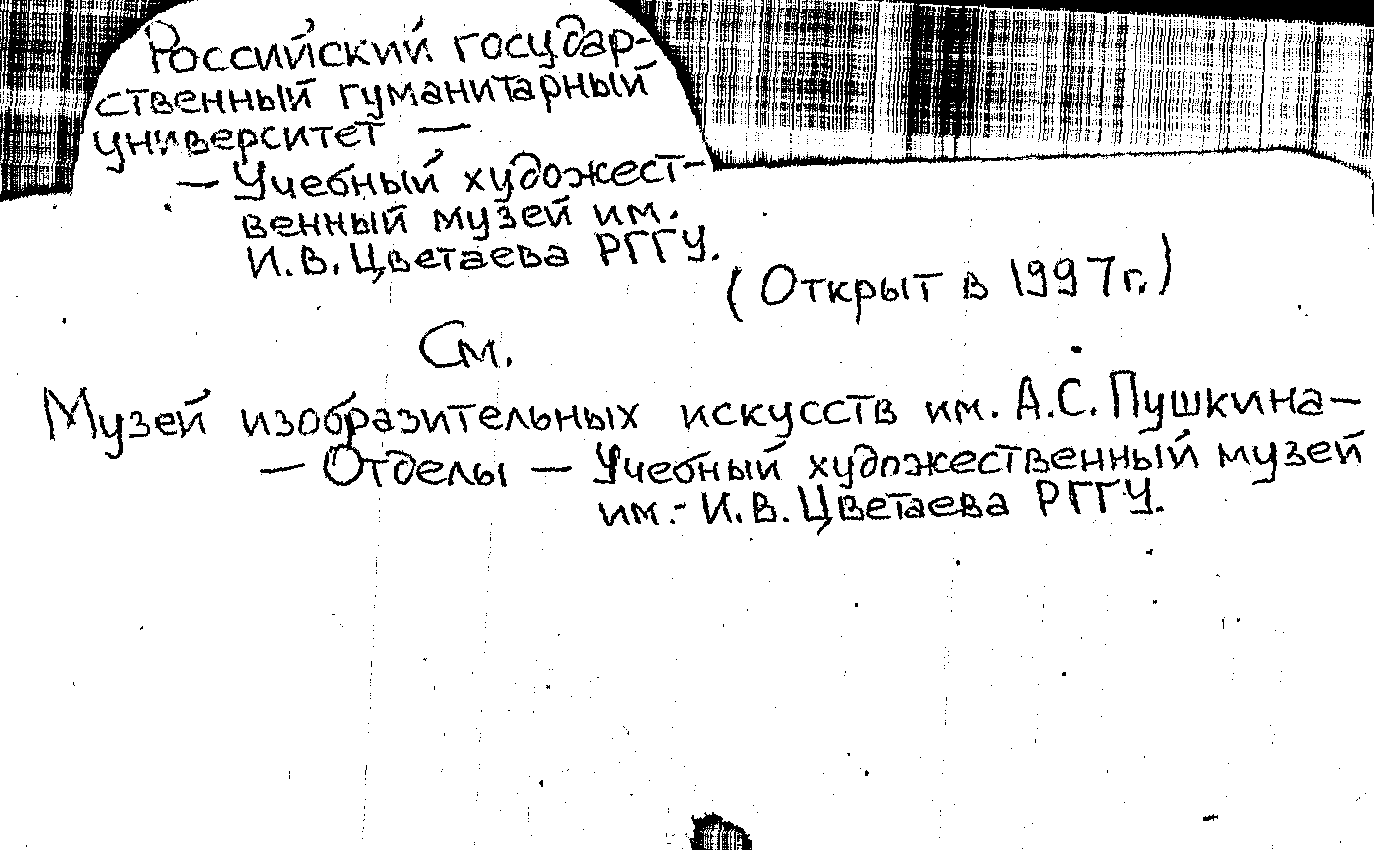 Российский государ-
ственный гуманитарный
университет —
— Учебный художест-
венный музей им.
И.В. Цветаева РГГУ.
(Открыт в 1997г.)
См.
Музей изобразительных искусств им. А.С. Пушкина —
— Отделы — Учебный художественный музей
им. И.В. Цветаева РГГУ.